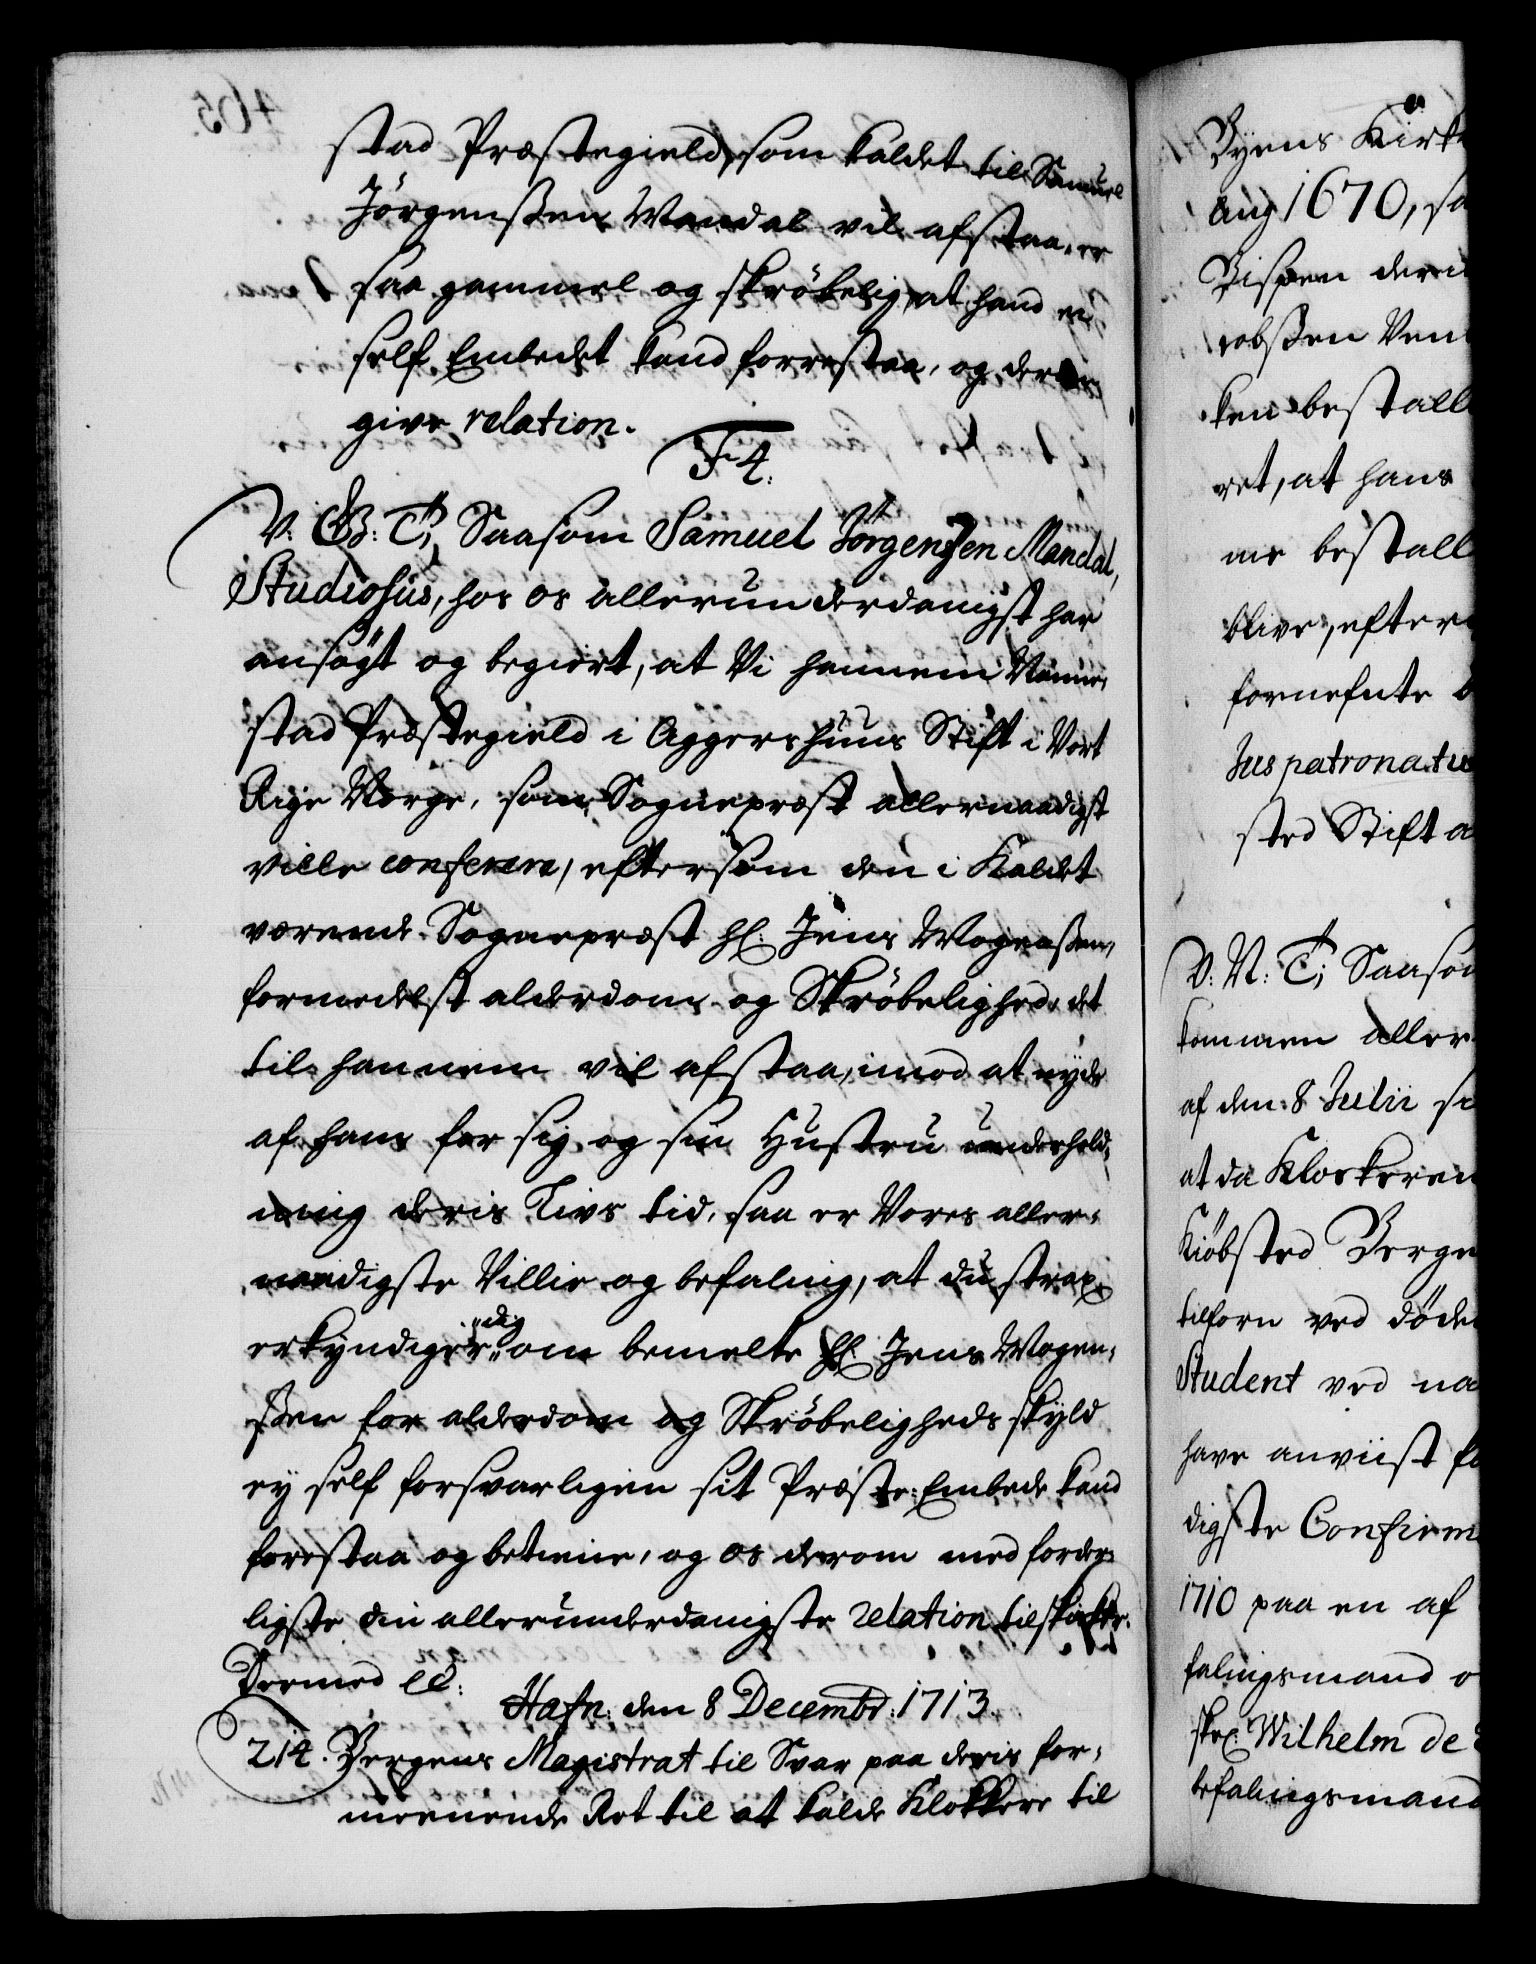 stad Præstegield, som kaldet til Samuel
Jørgenßen Mandal vil afstaa, er
saa gammel og skrøbelig, at hand ei
self Embedet kand forrestaa, og derom
give relation.
F4.
V. G: T; Saasom Samuel Jørgensen Mandal,
Studiosus, hos os allerunderdanigst har
ansøgt og begiert, at Vi hannem Nanne-
stad Præstegield i Aggershuus Stift i Vort
Rige Norge, som Sogneprest allernaadigst
ville conferere, eftersom den i Kaldet
værende Sogneprest Hr. Jens Mogenßen,
formedelst alderdom og Skrøbelighed, det
til hannem vil afstaa, imod at nyde
af ham for sig og sin Hustru underhold-
ning deris Livs tid, saa er Vores aller-
naadigste Villie og befaling, at du strax
erkyndiger dig om bemelte Hr. Jens Mogen-
ßen for alderdom og Skrøbeligheds skyld
ey self forsvarligen sit Præste-Embede kand
forestaa og betiene, og os derom med forder-
ligste din allerunderdanigste relation tilskikke.
Dermed etc:
Hafn: den 8 Decembr: 1713.
214. Bergens Magistrat til Svar paa deris for-
meenende Ret til at kalde Klokkere til
Byens Kirk
Aug 1670, sa
Bispen der
robßen Ven
ken bestall
ret, at hans
me bestall
blive, efter
fornefnte
Jus patronatus
sted Stift a
V. N: T; Saasom
kommen aller
af den 8 Julii si
at da Klokkeren
Kiøbsted Berge
tilforn ved døde
Student ved na
have anviist fo
digste Confirm
1710 paa en af
falingsmand o
skr. Wilhelm de
befalingsmand